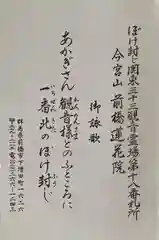 ぼけ封じ関東三十三観音霊場第十八番札所
今宮山 前橋蓮花院
御詠歌
あかぎさん 観音様とのふところに
一番北のぼけ封じ
群馬県前橋市下増田町一六二六